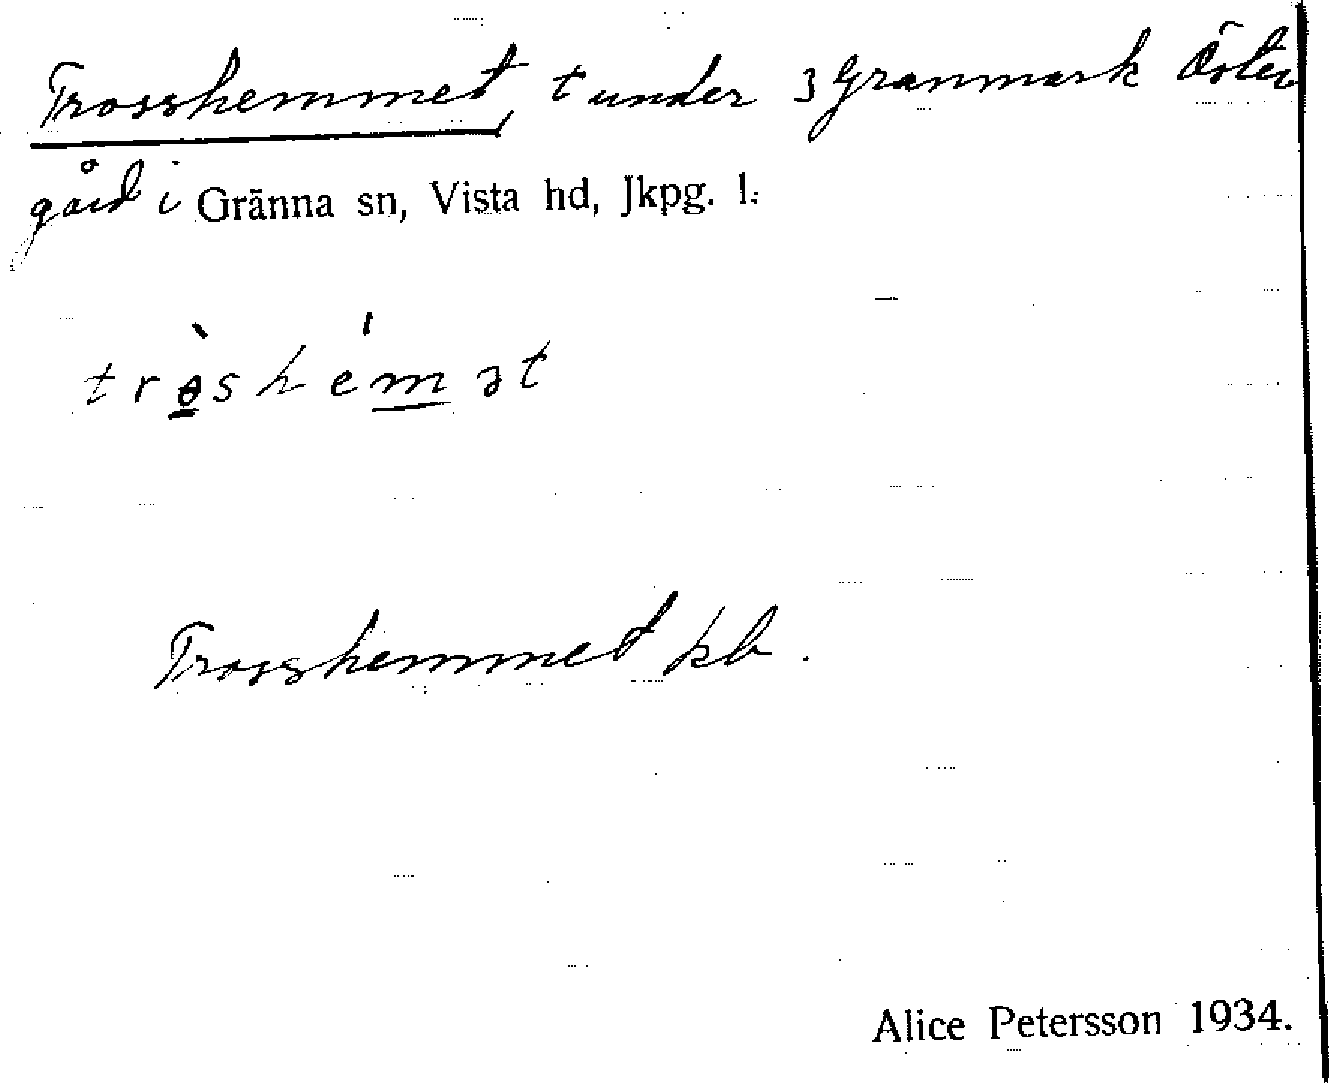 Trosshemmet, t under 3 Granmark Öster
gård i Gränna sn, Vista hd, Jkpg. l.
trɵ̀shémət
Trosshemmet kb.
Alice Petersson 1934.